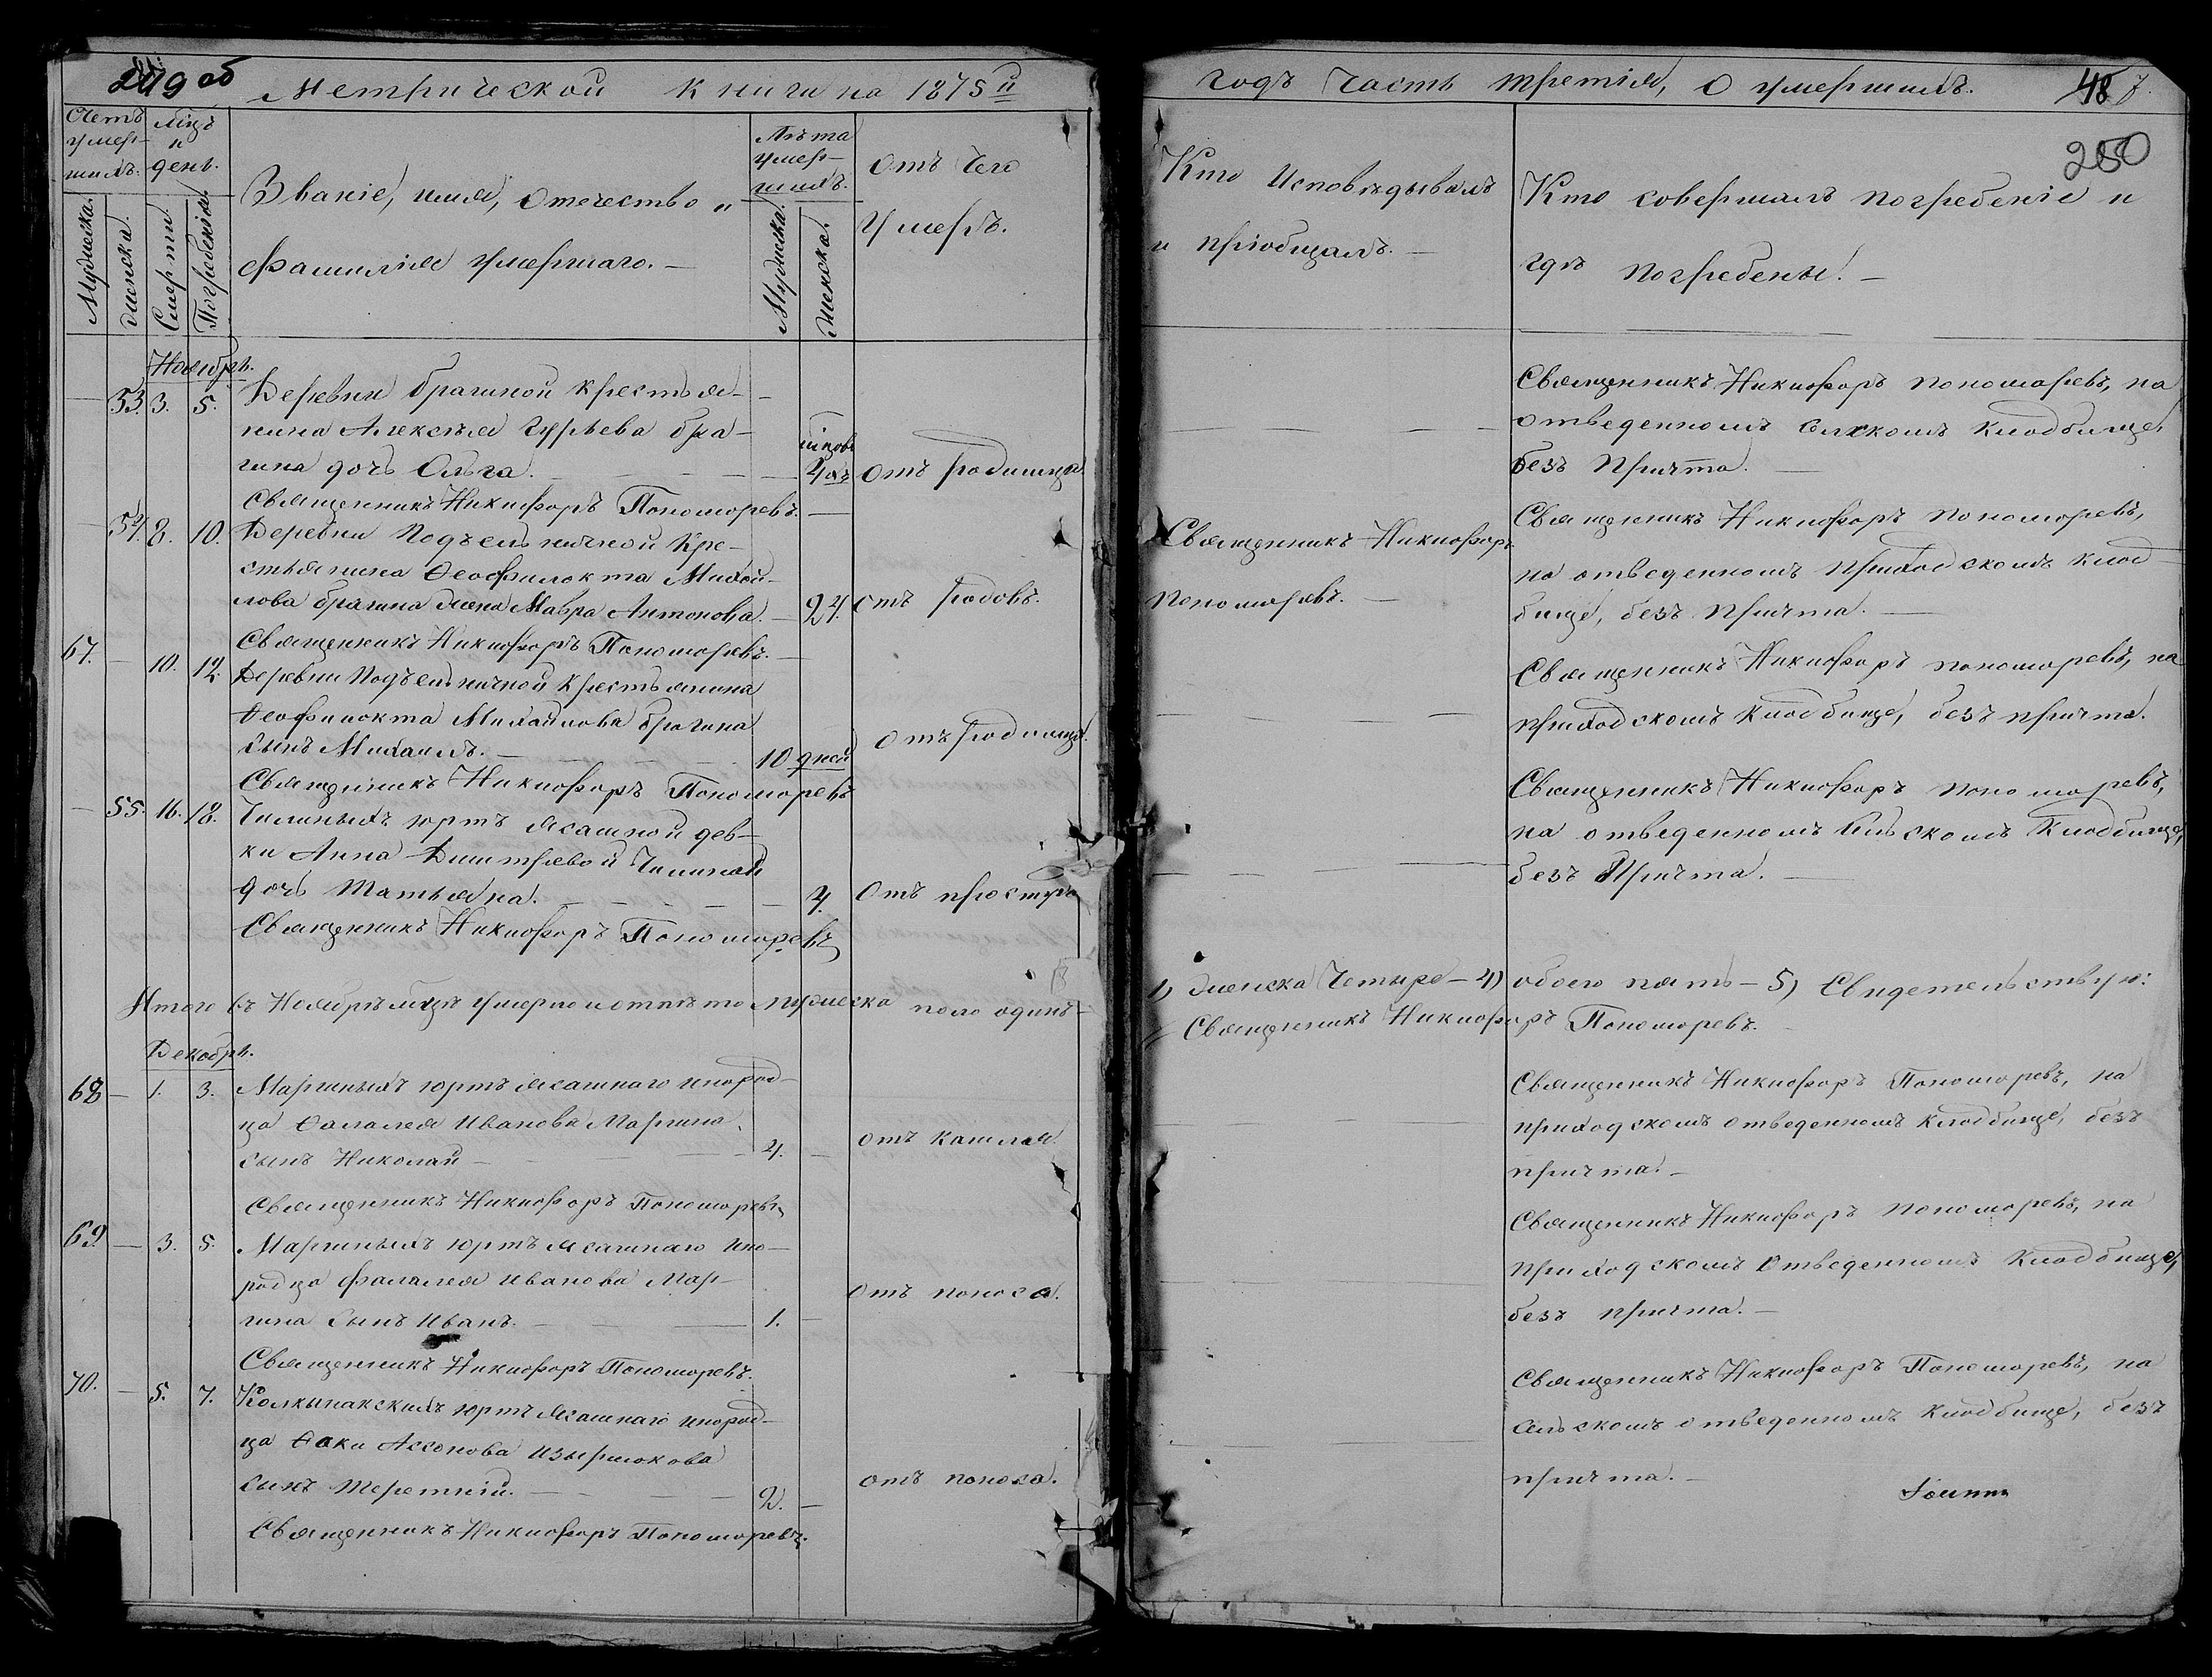 249 об
Метрической книги на 1875й
годъ часть третія, о умершихъ.
48
250
Счетъ умер-
шихъ.
Мужеска.
женска.
мцъ
и
день.
Смерти.
Погребенія.
Званіе, имя, отечество и
фамилія умершаго. —
Лѣта
умер-
шихъ.
Мужеска.
Женска.
Отъ чего
умеръ.
Кто исповѣдывалъ
и пріобщалъ. —
Кто совершалъ погребеніе и
гдѣ погребены. —
Ноябрь.
— 53. 3. 5. Деревни Брагиной крестья-
нина Алексѣя Гурьева Бра-
гина дочь Ольга. —
отъ родимца
Священникъ Никифоръ Пономоревъ, на
отведенномъ селскомъ кладбище,
безъ Причта. —
Священникъ Никифоръ Пономоревъ. —
— 54. 8. 10. Деревни Подъельничной Кре-
стьянина Ѳеофилокта Михай-
лова Брагина жена Мавра Антонова. — 24. отъ родовъ.
Священникъ Никифоръ
Пономоревъ. —
Священникъ Никифоръ Пономоревъ,
на отведенномъ приходскомъ клад-
бище, безъ причта. —
Священникъ Никифоръ Пономоревъ. —
67. — 10. 12. Деревни Подъельничной крестьянина
Ѳеофилокта Михайлова Брагина
сынъ Михаилъ. — 10 дней
отъ родимца.
Священникъ Никифоръ Пономоревъ, на
приходскомъ кладбище, безъ причта.
Священникъ Никифоръ Пономоревъ
— 55. 16. 18. Чилиныхъ юртъ ясашной дев-
ки Анна Димтревой Чилиной
дочь Татьяна. — 4. отъ простуды
Священникъ Никифоръ Пономоревъ,
на отведенномъ сельскомъ кладбище,
безъ Причта. —
Священникъ Никифоръ Пономоревъ
Итого въ Ноябрѣ мцѣ умерло и отпѣто мужеска пола одинъ — 1, женска четыре — 4, обоего пять — 5, Свидетельствую:
Священникъ Никифоръ Пономоревъ.
Декабрь.
68 — 1. 3. Маргиныхъ юртъ ясашнаго инород-
ца Ѳалалея Иванова Маргина
сынъ Николай — 4. — отъ кашля.
Священникъ Никифоръ Пономоревъ, на
приходскомъ отведенномъ кладбище, безъ
причта. —
Священникъ Никифоръ Пономоревъ
69. — 3. 5. Маргиныхъ юртъ ясашнаго ино-
родца Фалалея Иванова Мар-
гина сынъ Иванъ. — 1. — отъ поноса.
Священникъ Никифоръ Пономоревъ, на
приходскомъ отведенномъ кладбище,
безъ причта. —
Священникъ Никифоръ Пономоревъ.
70. — 5. 7. Колкынакскихъ юртъ ясашнаго инород-
ца Ѳоки Ассонова
сынъ Терентій. — 2. — отъ поноса.
Священникъ Никифоръ Пономоревъ, на
сельскомъ отведенномъ кладбище, безъ
причта. —
Священникъ Никифоръ Пономоревъ.